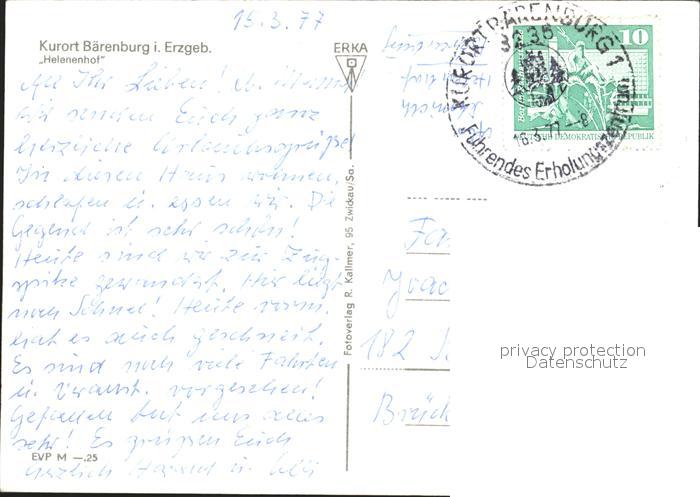 15.3.77
Kurort Bärenburg i. Erzgeb.
„Helenenhof“
ERKA
All Ihr Lieben!
Wir senden Euch ganz
herzliche Urlaubsgrüße!
In diesem Haus wohnen,
schlafen u. essen wir. Die
Gegend ist sehr schön!
Heute sind wir zur Zug-
spitze gewandert. Hier liegt
noch Schnee! Heute vorm.
hat es auch geschneit.
Es sind noch viele Fahrten
u. Veranst. vorgesehen!
Gefallen tut uns alles
sehr! Es grüßen Euch
herzlich u.
EVP M —.25
Fotoverlag R. Kallmer, 95 Zwickau/Sa.
KURORT BÄRENBURG 1
8235
16.3.77–8
Führendes Erholungszentrum
10
DEUTSCHE DEMOKRATISCHE REPUBLIK
Fa
Joac
182
Brück
privacy protection
Datenschutz